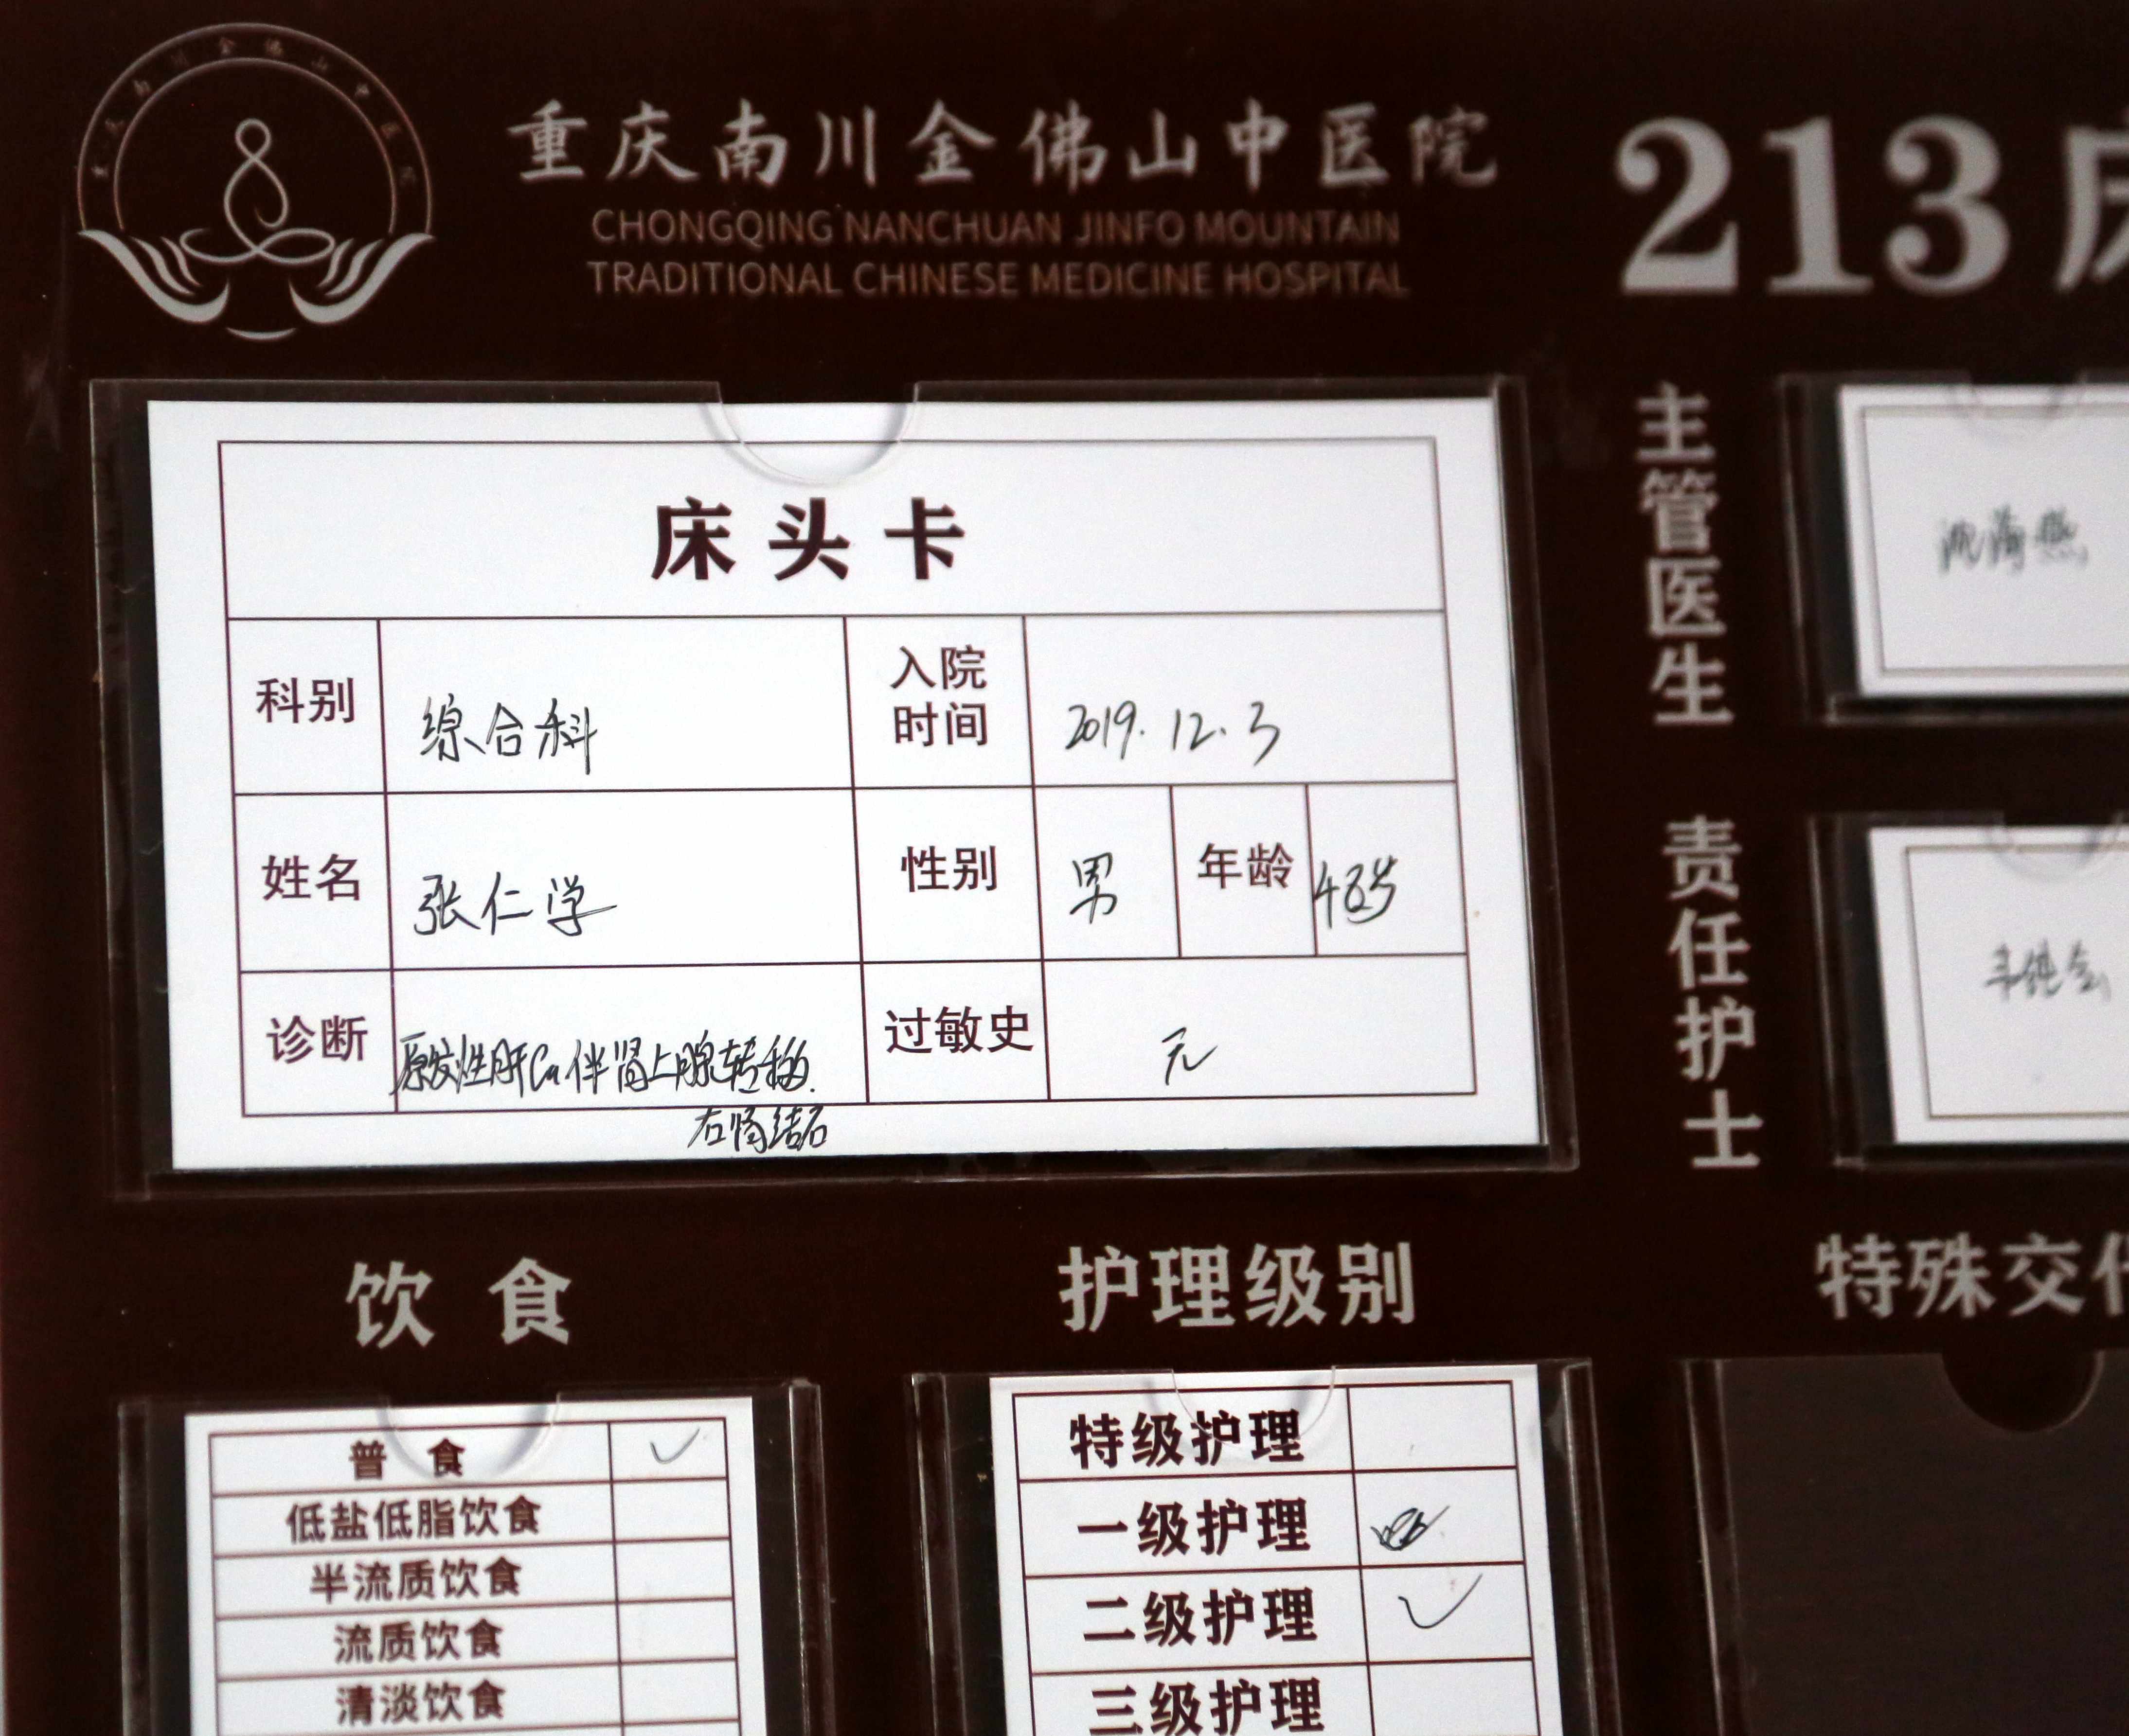 重庆南川金佛山中医院
CHONGQING NANCHUAN JINFO MOUNTAIN
TRADITIONAL CHINESE MEDICINE HOSPITAL
213床
床头卡
科别 综合科 入院时间 2019.12.3
姓名 张仁学 性别 男 年龄 48岁
诊断 原发性肝Ca伴肾上腺转移. 过敏史 无
右肾结石
主管医生
责任护士
饮食
普食 ✓
低盐低脂饮食
半流质饮食
流质饮食
清淡饮食
护理级别
特级护理
一级护理
二级护理 ✓
三级护理
特殊交代